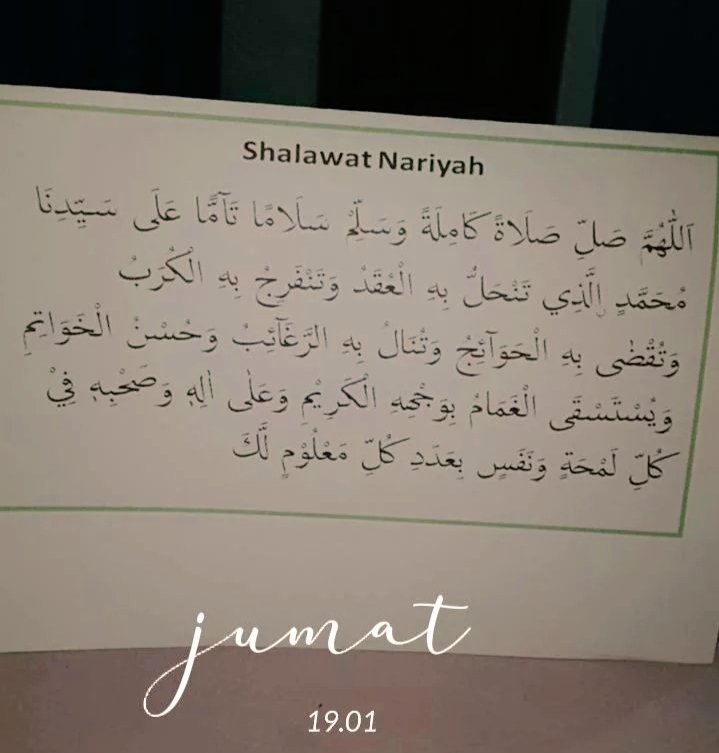 Shalawat Nariyah
اَللّٰهُمَّ صَلِّ صَلَاةً كَامِلَةً وَسَلِّمْ سَلَامًا تَآمًّا عَلَى سَيِّدِنَا
مُحَمَّدٍ الَّذِي تَنْحَلُّ بِهِ الْعُقَدُ وَتَنْفَرِجُ بِهِ الْكُرَبُ
وَتُقْضٰى بِهِ الْحَوَآئِجُ وَتُنَالُ بِهِ الرَّغَآئِبُ وَحُسْنُ الْخَوَاتِمِ
وَيُسْتَسْقَى الْغَمَامُ بِوَجْهِهِ الْكَرِيْمِ وَعَلٰى اٰلِهٖ وَصَحْبِهٖ فِيْ
كُلِّ لَمْحَةٍ وَنَفَسٍ بِعَدَدِ كُلِّ مَعْلُوْمٍ لَّكَ
jumat
19.01